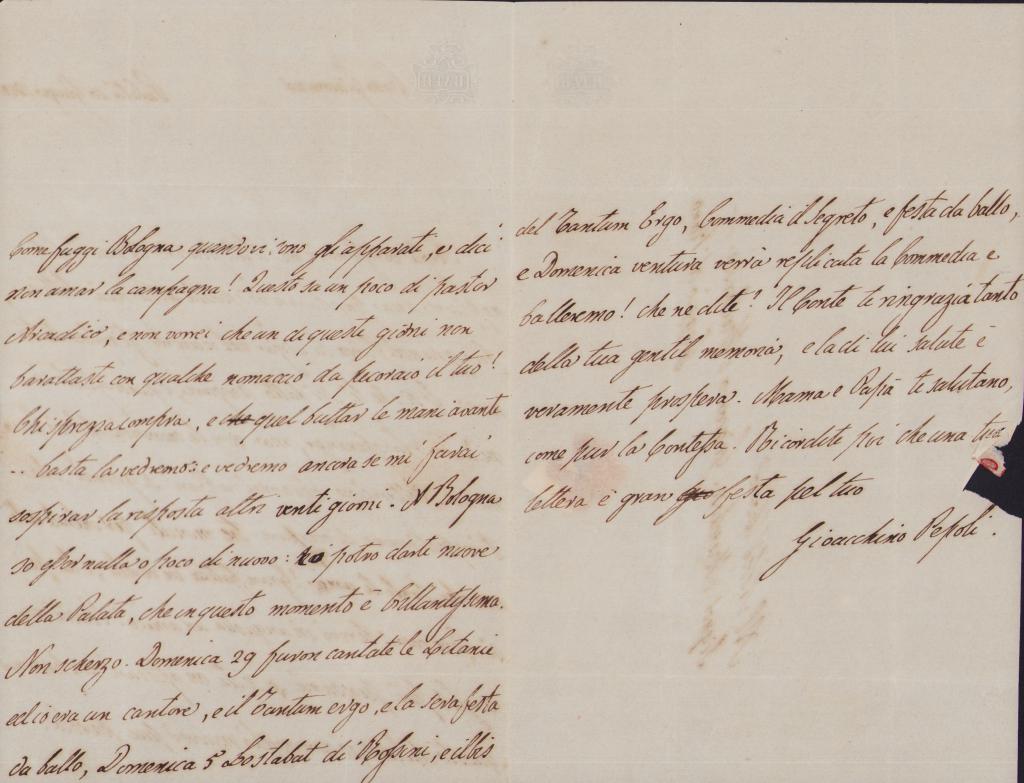 Come fuggi Bologna quando vi sono gli apparati, e dici
non amar la campagna! Questo sa un poco di pastor
Arcadico, e non vorrei che un di questi giorni non
barattasti con qualche nomaccio da pecoraio il tuo!
Chi sprezza compra, e che quel buttar le mani avanti
... basta la vedremo: e vedremo ancora se mi farai
sospirar la risposta altri venti giorni. A Bologna
so esser nulla o poco di nuovo: potrò darti nuove
della Palata, che in questo momento è brillantissima.
Non scherzo. Domenica 29 furon cantate le Litanie
ed io era un cantore, e il Tantum ergo, e la sera festa
da ballo, Domenica 5 Lo stabat di Rossini, e il bis
del Tantum Ergo, Commedia il Segreto, e festa da ballo,
e Domenica ventura verrà replicata la Commedia e
balleremo! che ne dite? Il Conte ti ringrazia tanto
della tua gentil memoria, e la di lui salute è
veramente prospera. Mama e Papà ti salutano,
come pur la Contessa. Ricordite poi che una tua
lettera è gran festa pel tuo
Gioacchino Pepoli.